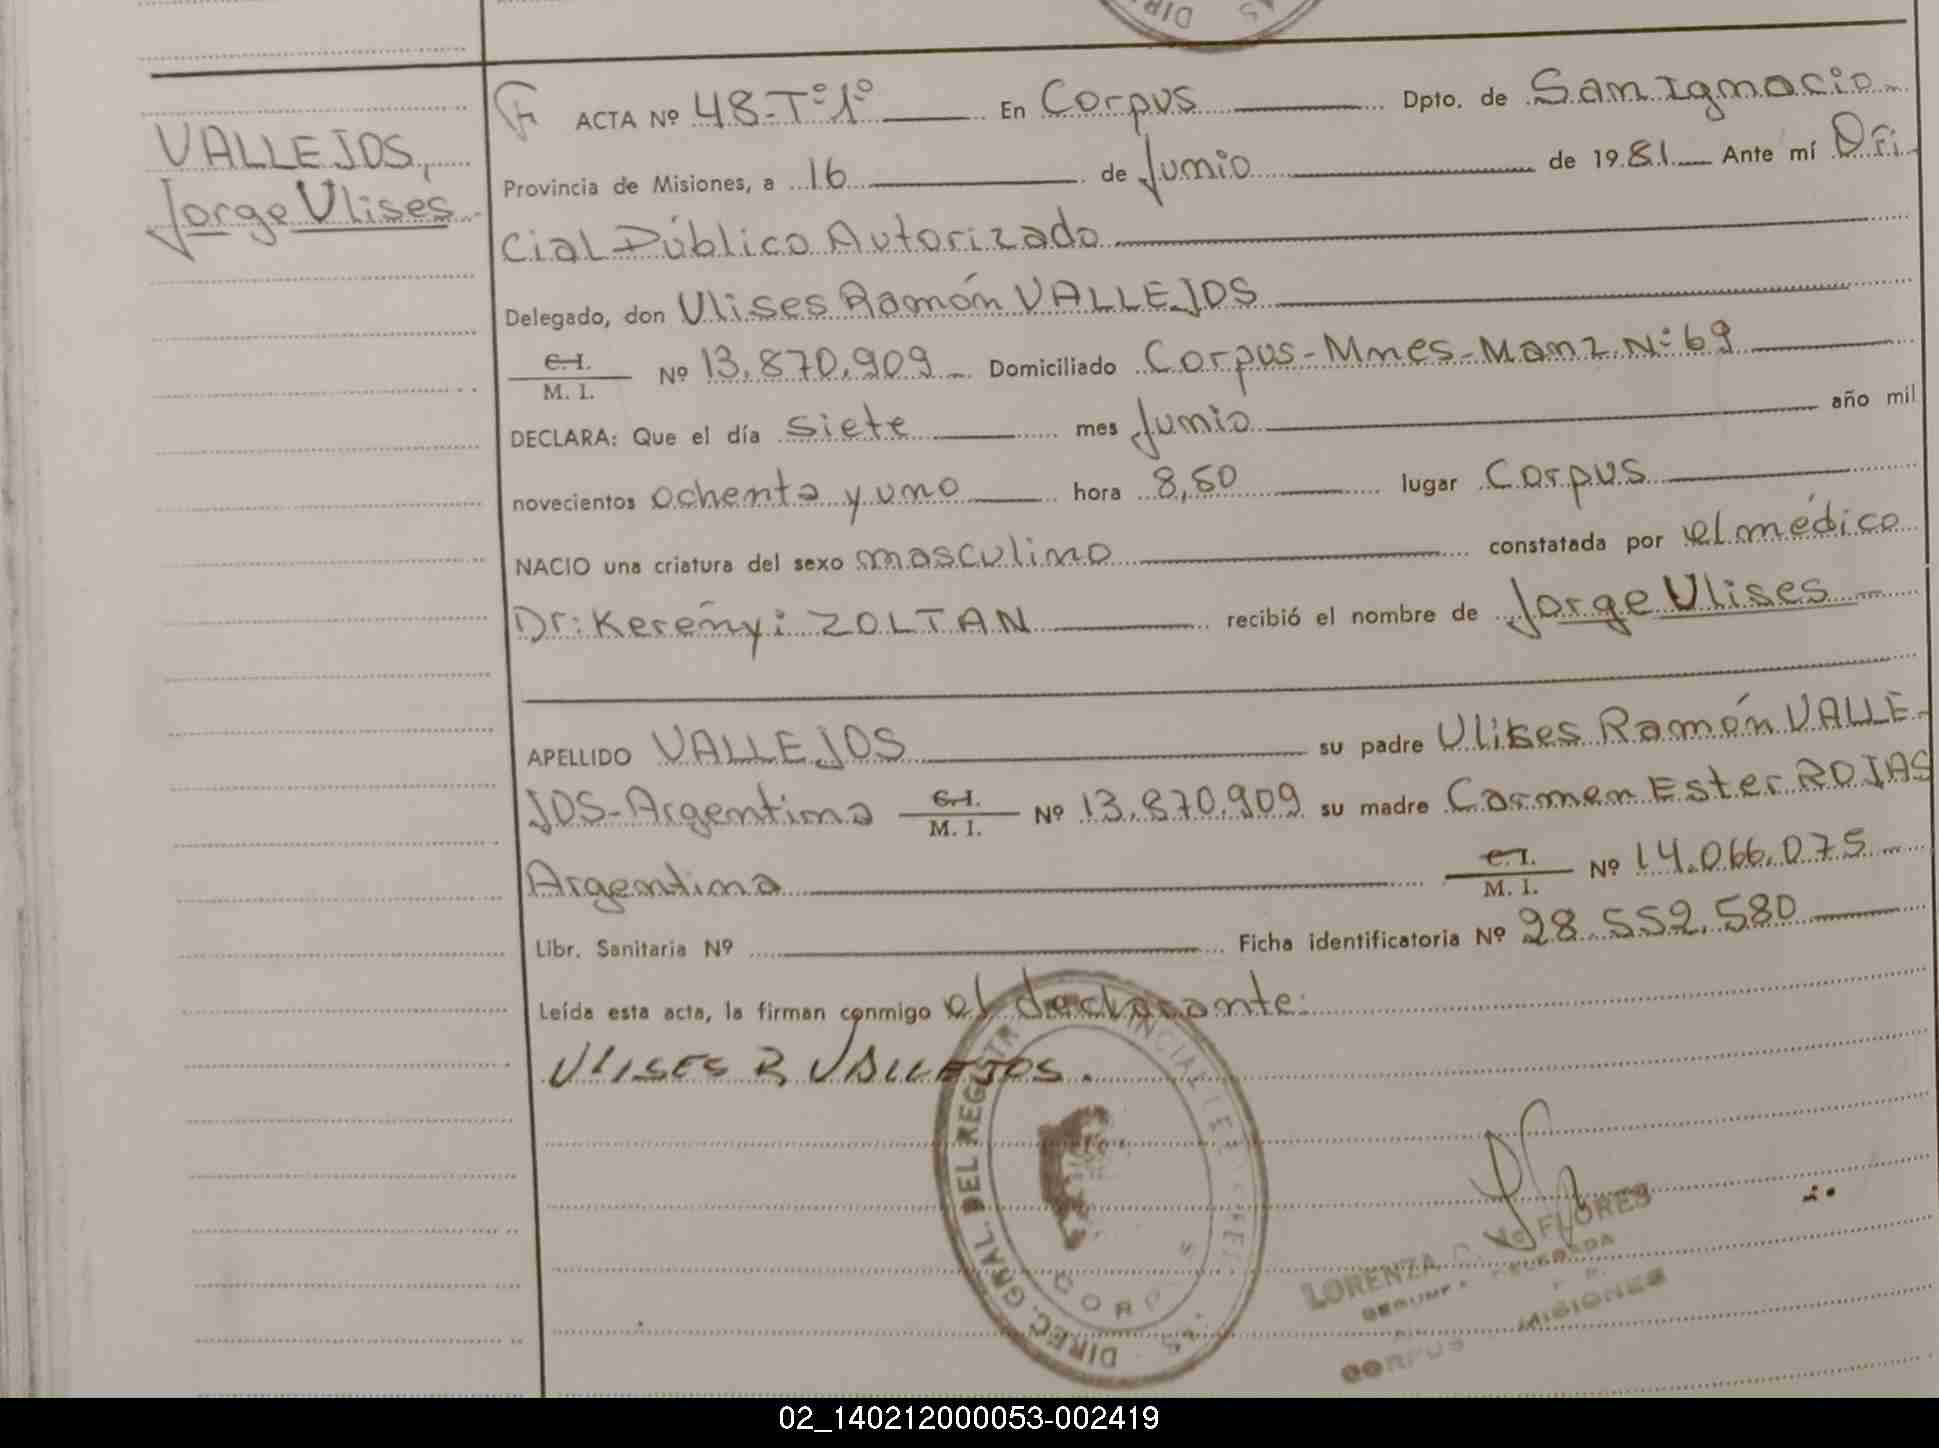 DIR AS
VALLEJOS,
Jorge Ulises
ACTA Nº 48-Tº1º En Corpus Dpto. de San Ignacio
Provincia de Misiones, a 16 de Junio de 1981 Ante mí Ofi
cial Público Autorizado
Delegado, don Ulises Ramón VALLEJOS
C.I.
M. I. Nº 13.870.909 Domiciliado Corpus-Mnes-Manz N:69
DECLARA: Que el día siete mes Junio año mil
novecientos ochenta y uno hora 8,50 lugar Corpus
NACIO una criatura del sexo masculino constatada por el médico
Dr: Kerényi ZOLTAN recibió el nombre de Jorge Ulises
APELLIDO VALLEJOS su padre Ulises Ramón VALLE-
JOS-Argentino C.I. M. I. Nº 13.870.909 su madre Carmen Ester ROJAS
Argentina C.I. M. I. Nº 14.066.075
Libr. Sanitaria Nº Ficha identificatoria Nº 28.552.580
Leída esta acta, la firman conmigo el declarante:
ULISES R VALLEJOS.
DIREC. GRAL. DEL REGISTR PROVINCIAL DE
CORPUS
LORENZA FLORES
DELEGADA
CORPUS MISIONES
02_140212000053-002419